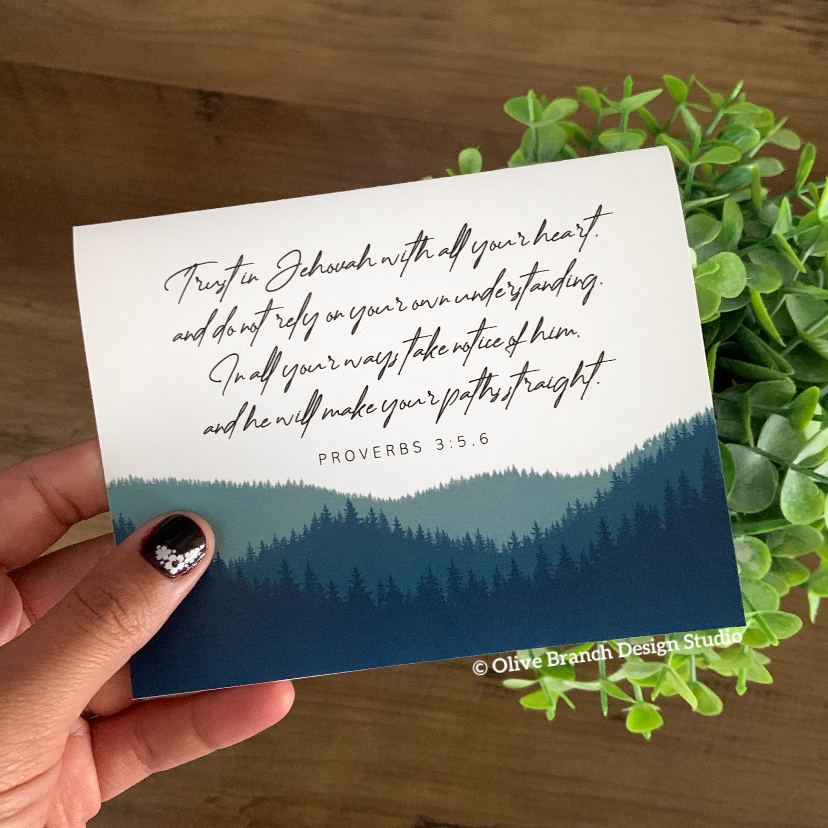 Trust in Jehovah with all your heart.
and do not rely on your own understanding.
In all your ways take notice of him.
and he will make your paths straight.
PROVERBS 3:5,6
© Olive Branch Design Studio